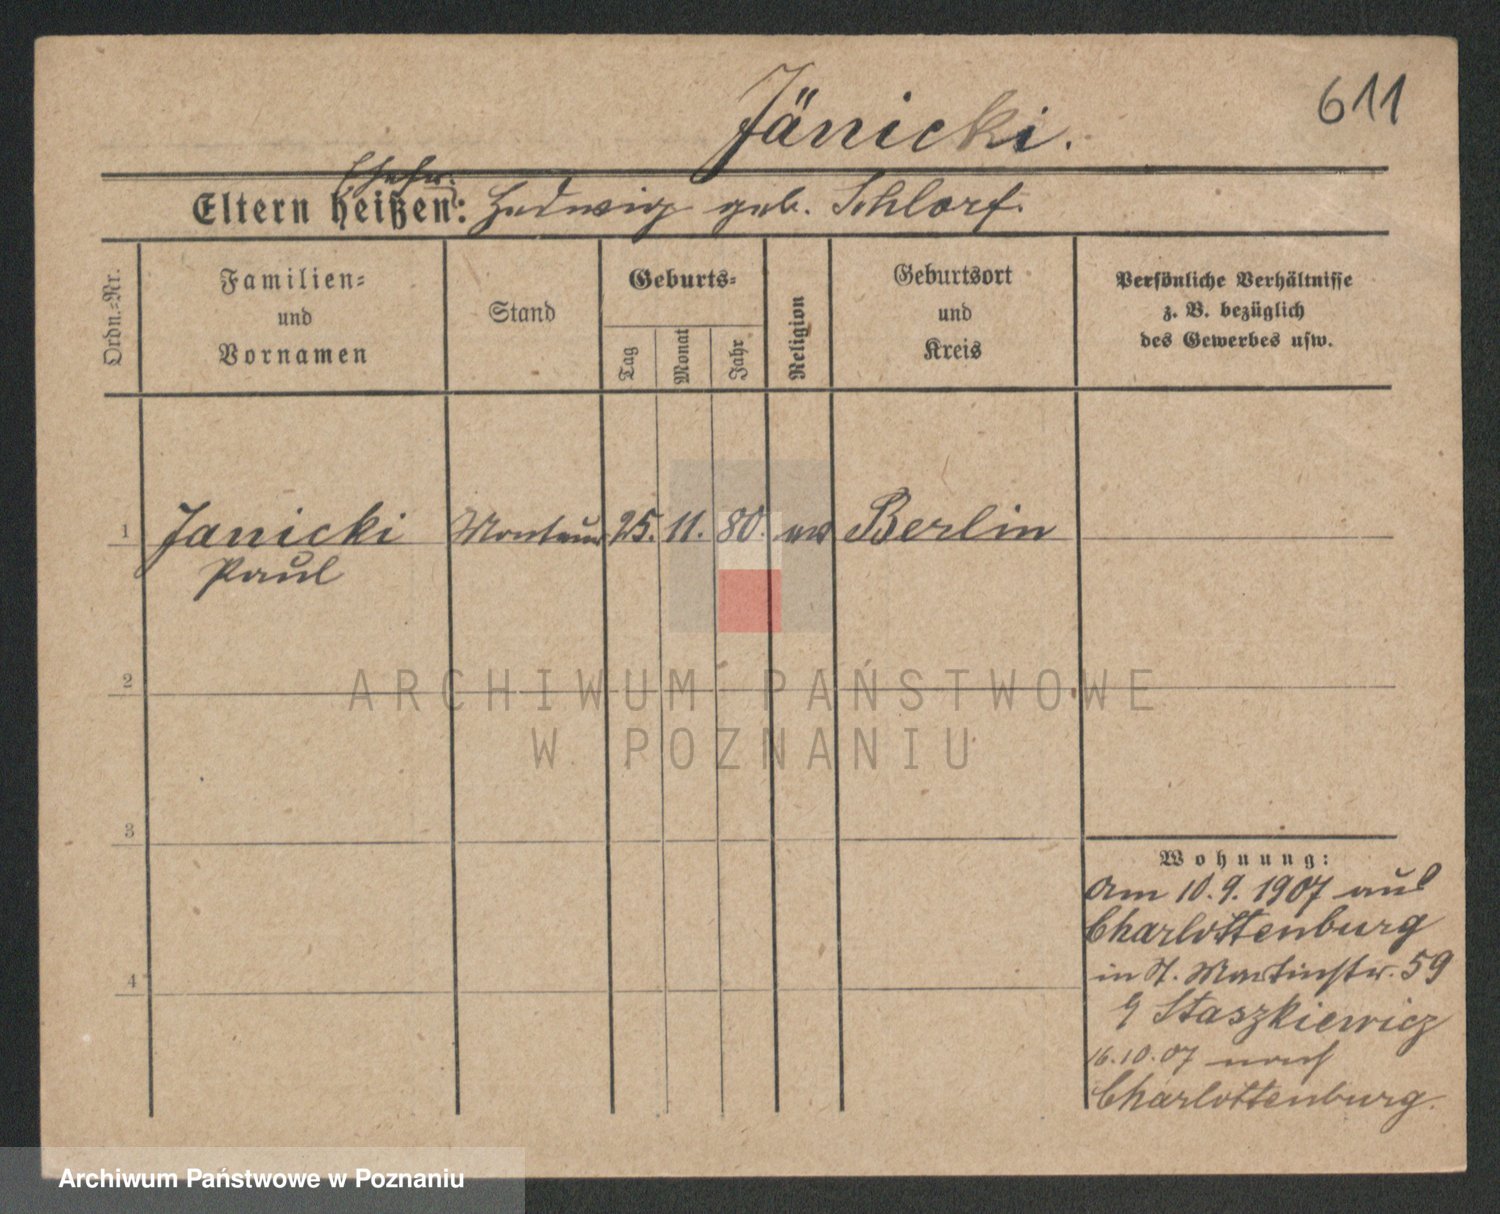 611
Jänicki.
Ehefr.
Eltern heißen: Hedwig geb. Schlorf.
Ordn.-Nr.
Familien-
und
Vornamen
Stand
Geburts-
Tag
Monat
Jahr
Religion
Geburtsort
und
Kreis
Persönliche Verhältnisse
z. B. bezüglich
des Gewerbes usw.
1 Janicki Monteur 25. 11. 80. Berlin
Paul
2
ARCHIWUM PAŃSTWOWE
W POZNANIU
3
4
Wohnung:
Am 10.9.1907 aus
Charlottenburg
in St. Martinstr. 59
Staszkiewicz
16.10.07 nach
Charlottenburg.
Archiwum Państwowe w Poznaniu